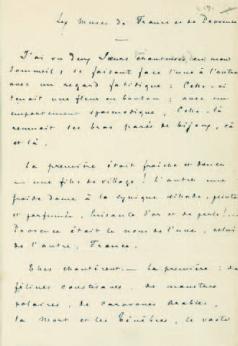 Les Muses de France et de Provence
J'ai vu deux Sœurs chanteuses, en mon
sommeil ; se faisant face l'une à l'autre
avec un regard fatidique : Celle-ci
tenait une fleur en bouton ; avec un
emportement spasmodique, Celle-là
remuait ses bras parés de bijoux, çà
et là.
La première était fraîche et
— une fille de village ! L'autre une
froide dame à la cynique œillade, peinte
et parfumée, luisante d'or et de perles !...
Provence était le nom de l'une, celui
de l'autre, France.
Elles chantèrent. — La première : de
félines courtisanes, de
polaires, de caravanes Arabes,
la Mort et les Ténèbres, le vaste